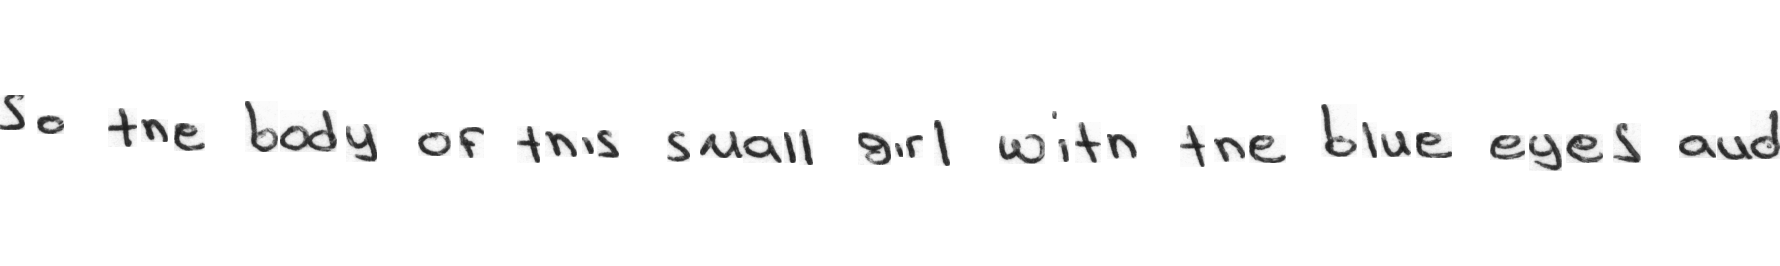 So the body of this small girl with the blue eyes and